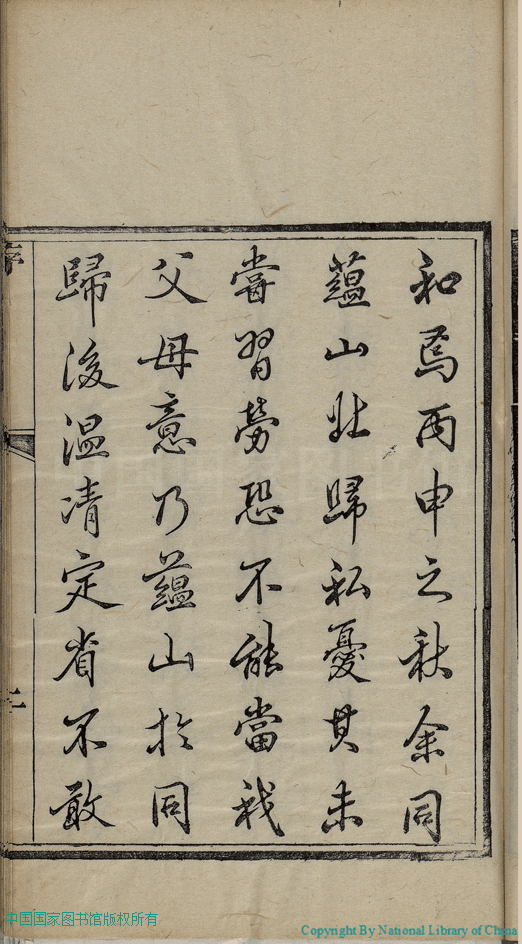 和焉丙申之秋余同
蘊山北歸私憂其未
嘗習勞恐不能當我
父母意乃蘊山於同
歸後温凊定省不敢
序
中国国家图书馆版权所有
Copyright By National Library of China